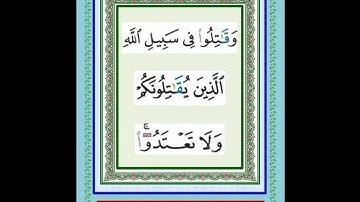 وَقَٰتِلُوا۟ فِى سَبِيلِ ٱللَّهِ
ٱلَّذِينَ يُقَٰتِلُونَكُمْ
وَلَا تَعْتَدُوٓا۟ ۚ